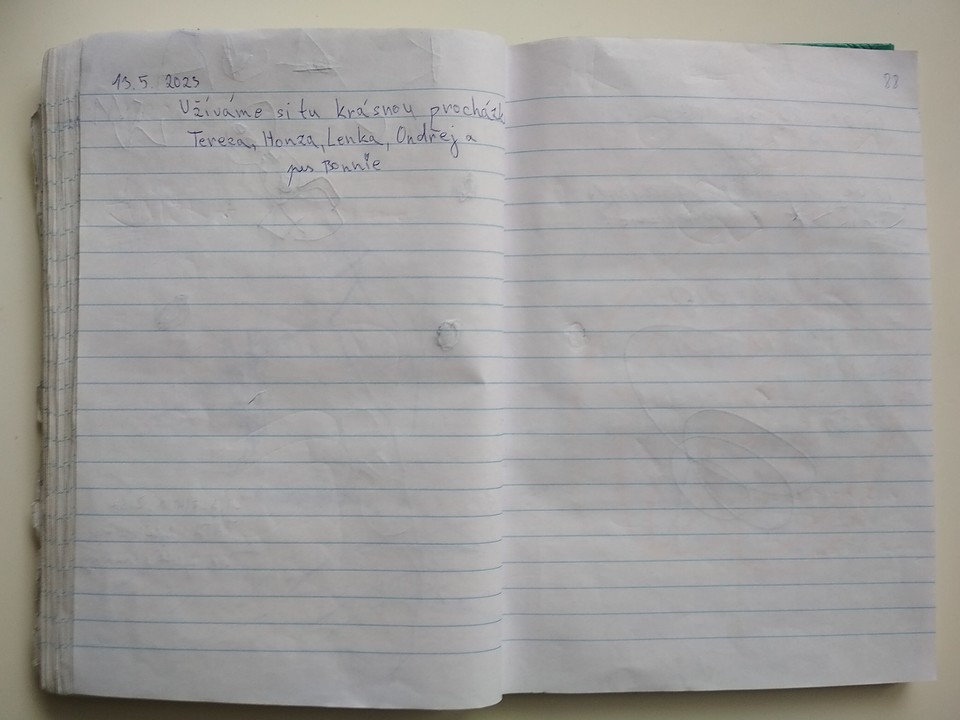 13.5. 2023
Užíváme si tu krásnou procházk
Tereza, Honza, Lenka, Ondřej a
pes Bonnie
88